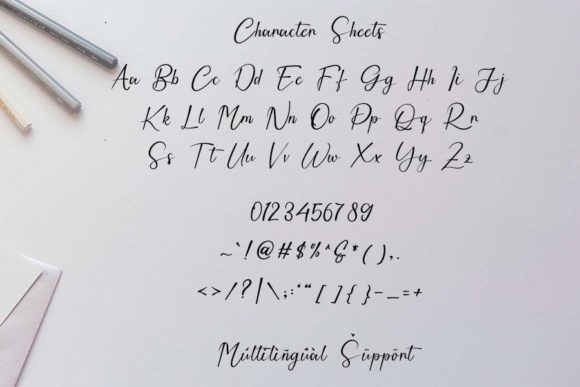 Character Sheets
Aa Bb Cc Dd Ee Ff Gg Hh Ii Jj
Kk Ll Mm Nn Oo Pp Qq Rr
Ss Tt Uu Vv Ww Xx Yy Zz
0123456789
~`!@#$%^&*(),.
<>/?|\;:'“[]{}-_=+
Múltïlïñgûàl Šüppört